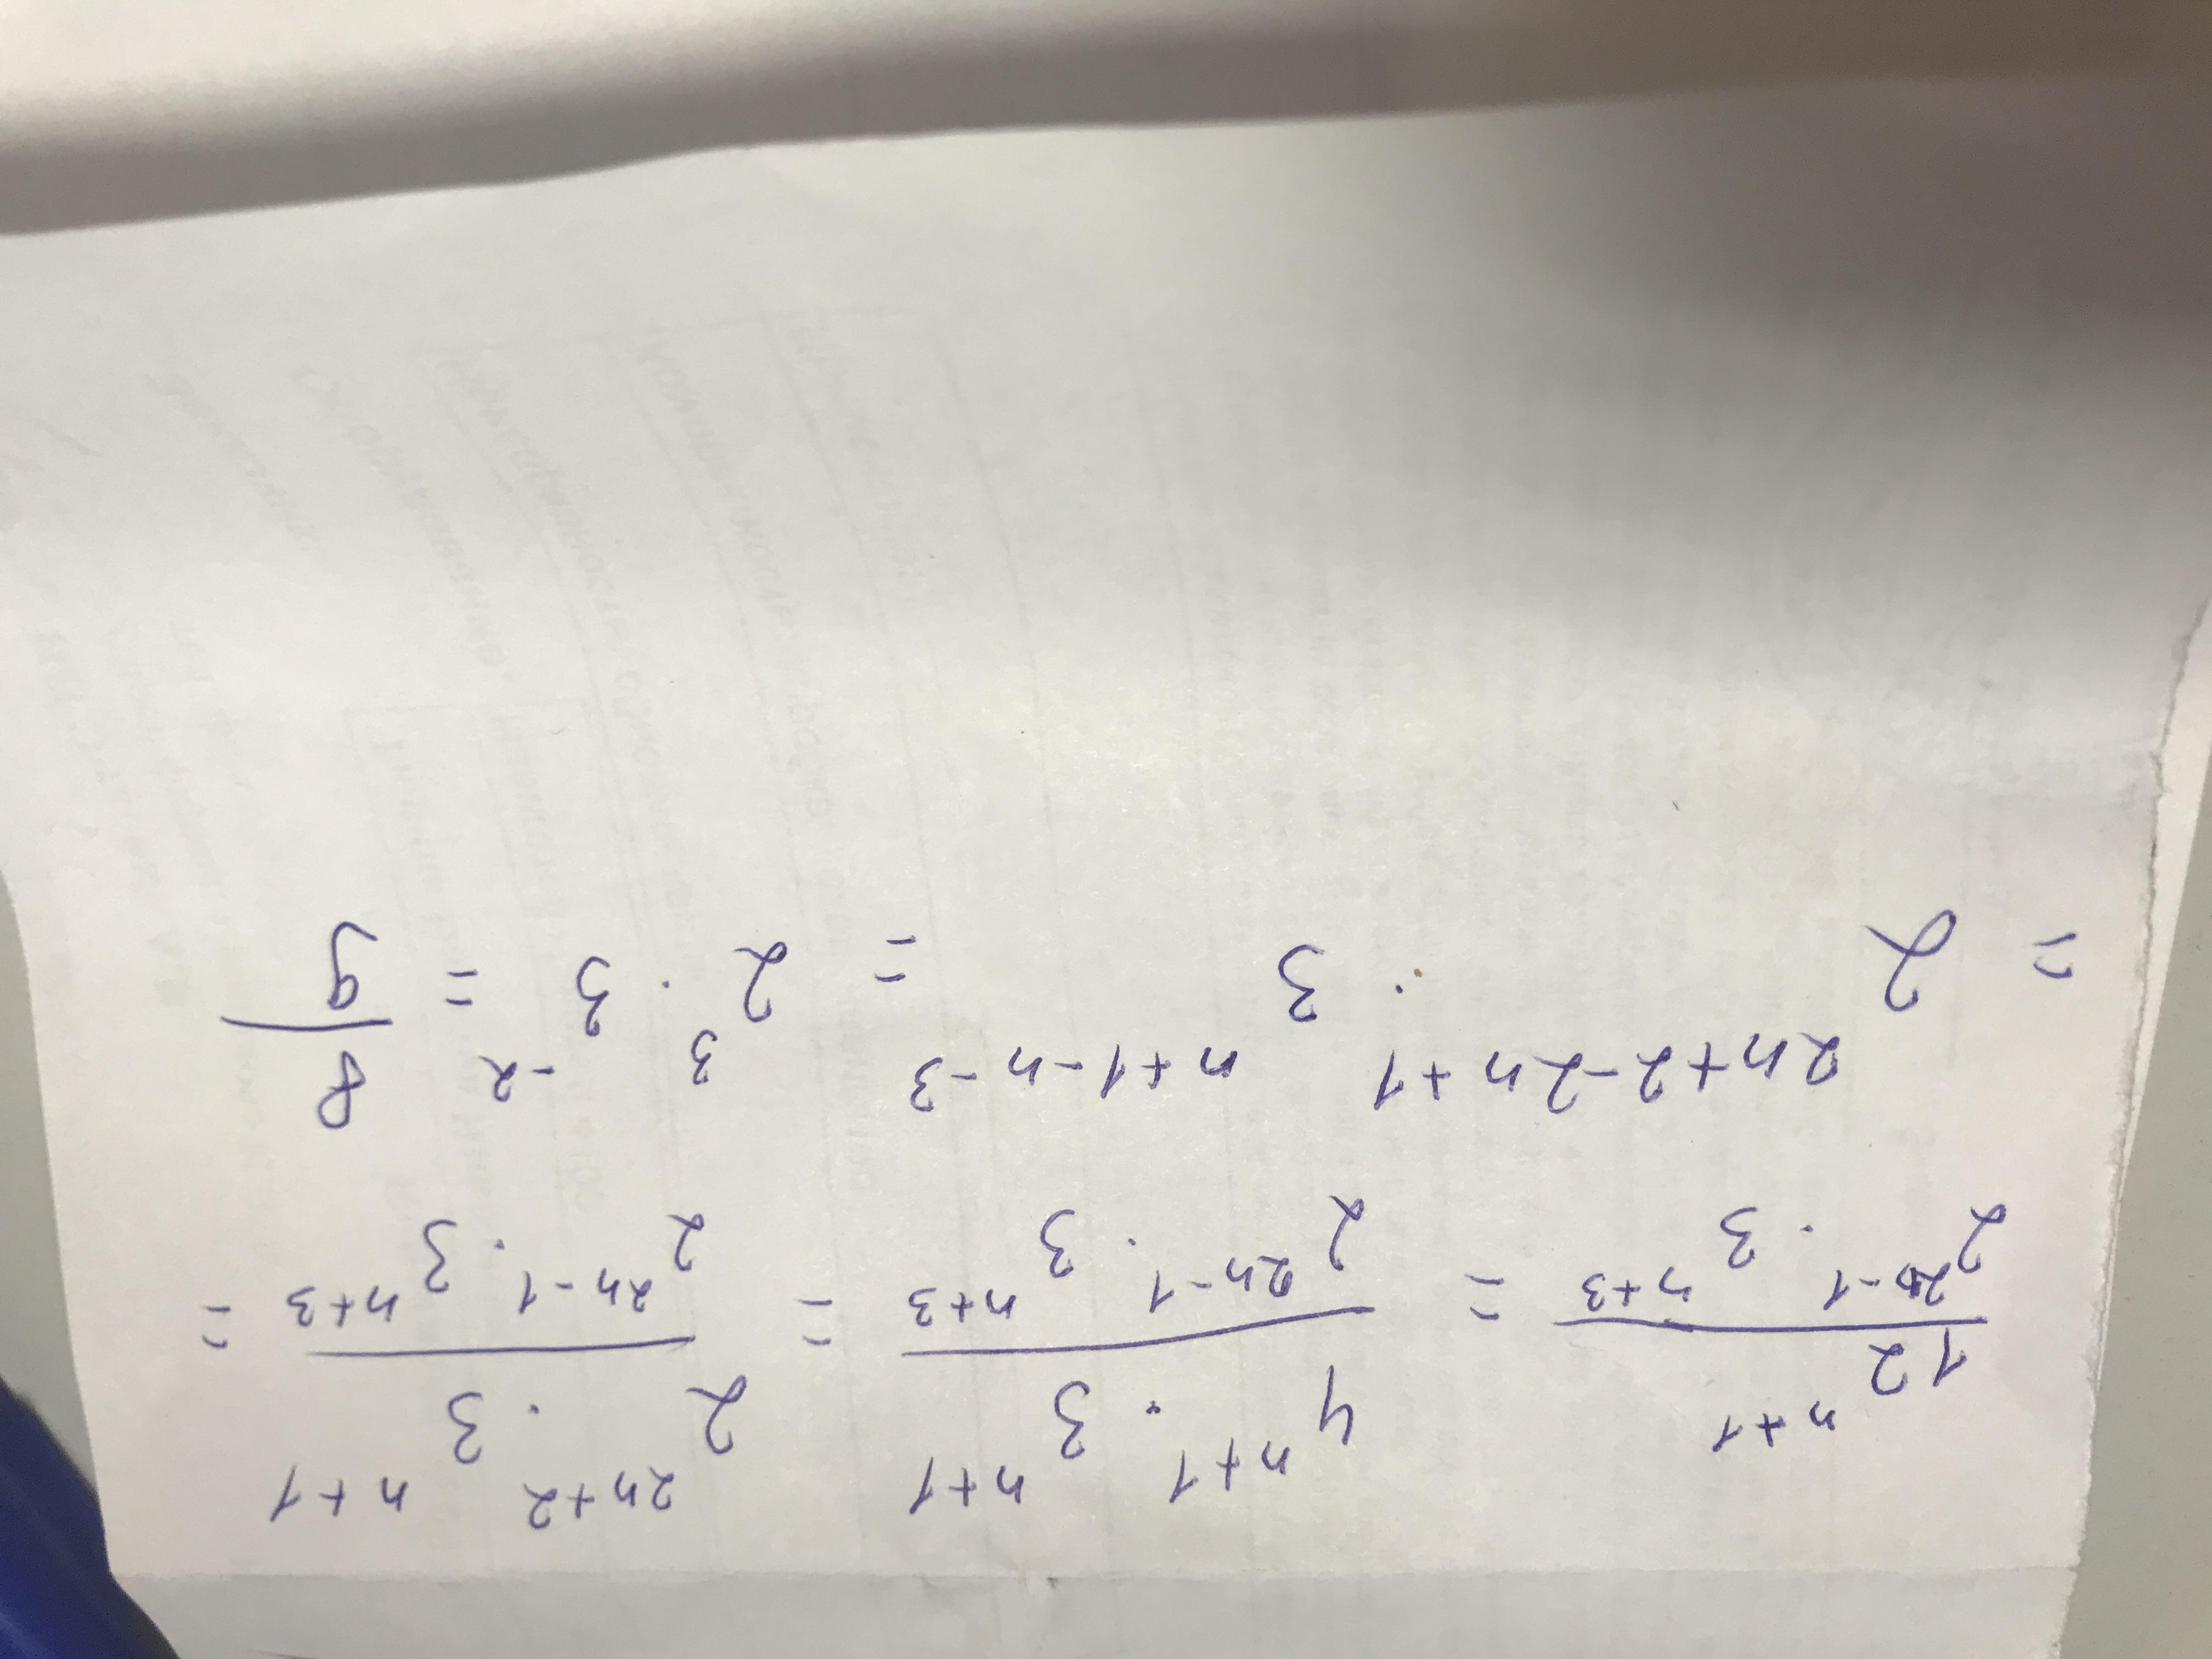 12^{n+1} / (2^{2n-1} · 3^{n+3}) = (4^{n+1} · 3^{n+1}) / (2^{2n-1} · 3^{n+3}) = (2^{2n+2} · 3^{n+1}) / (2^{2n-1} · 3^{n+3}) =
= 2^{2n+2-2n+1} · 3^{n+1-n-3} = 2^3 · 3^{-2} = 8/9